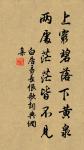 上窮碧落下黃泉
兩處茫茫皆不見
白居易長恨歌詞典網
集